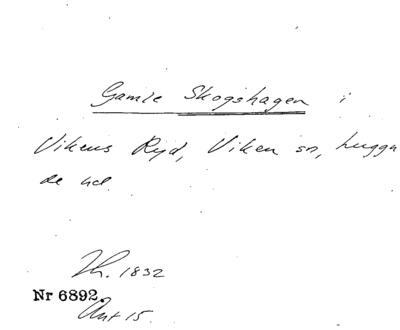 Gamle Skogshagen i
Vikens Ryd, Viken sn, hugga
de ud.
Th. 1832
Nr 6892.
Ant 15.